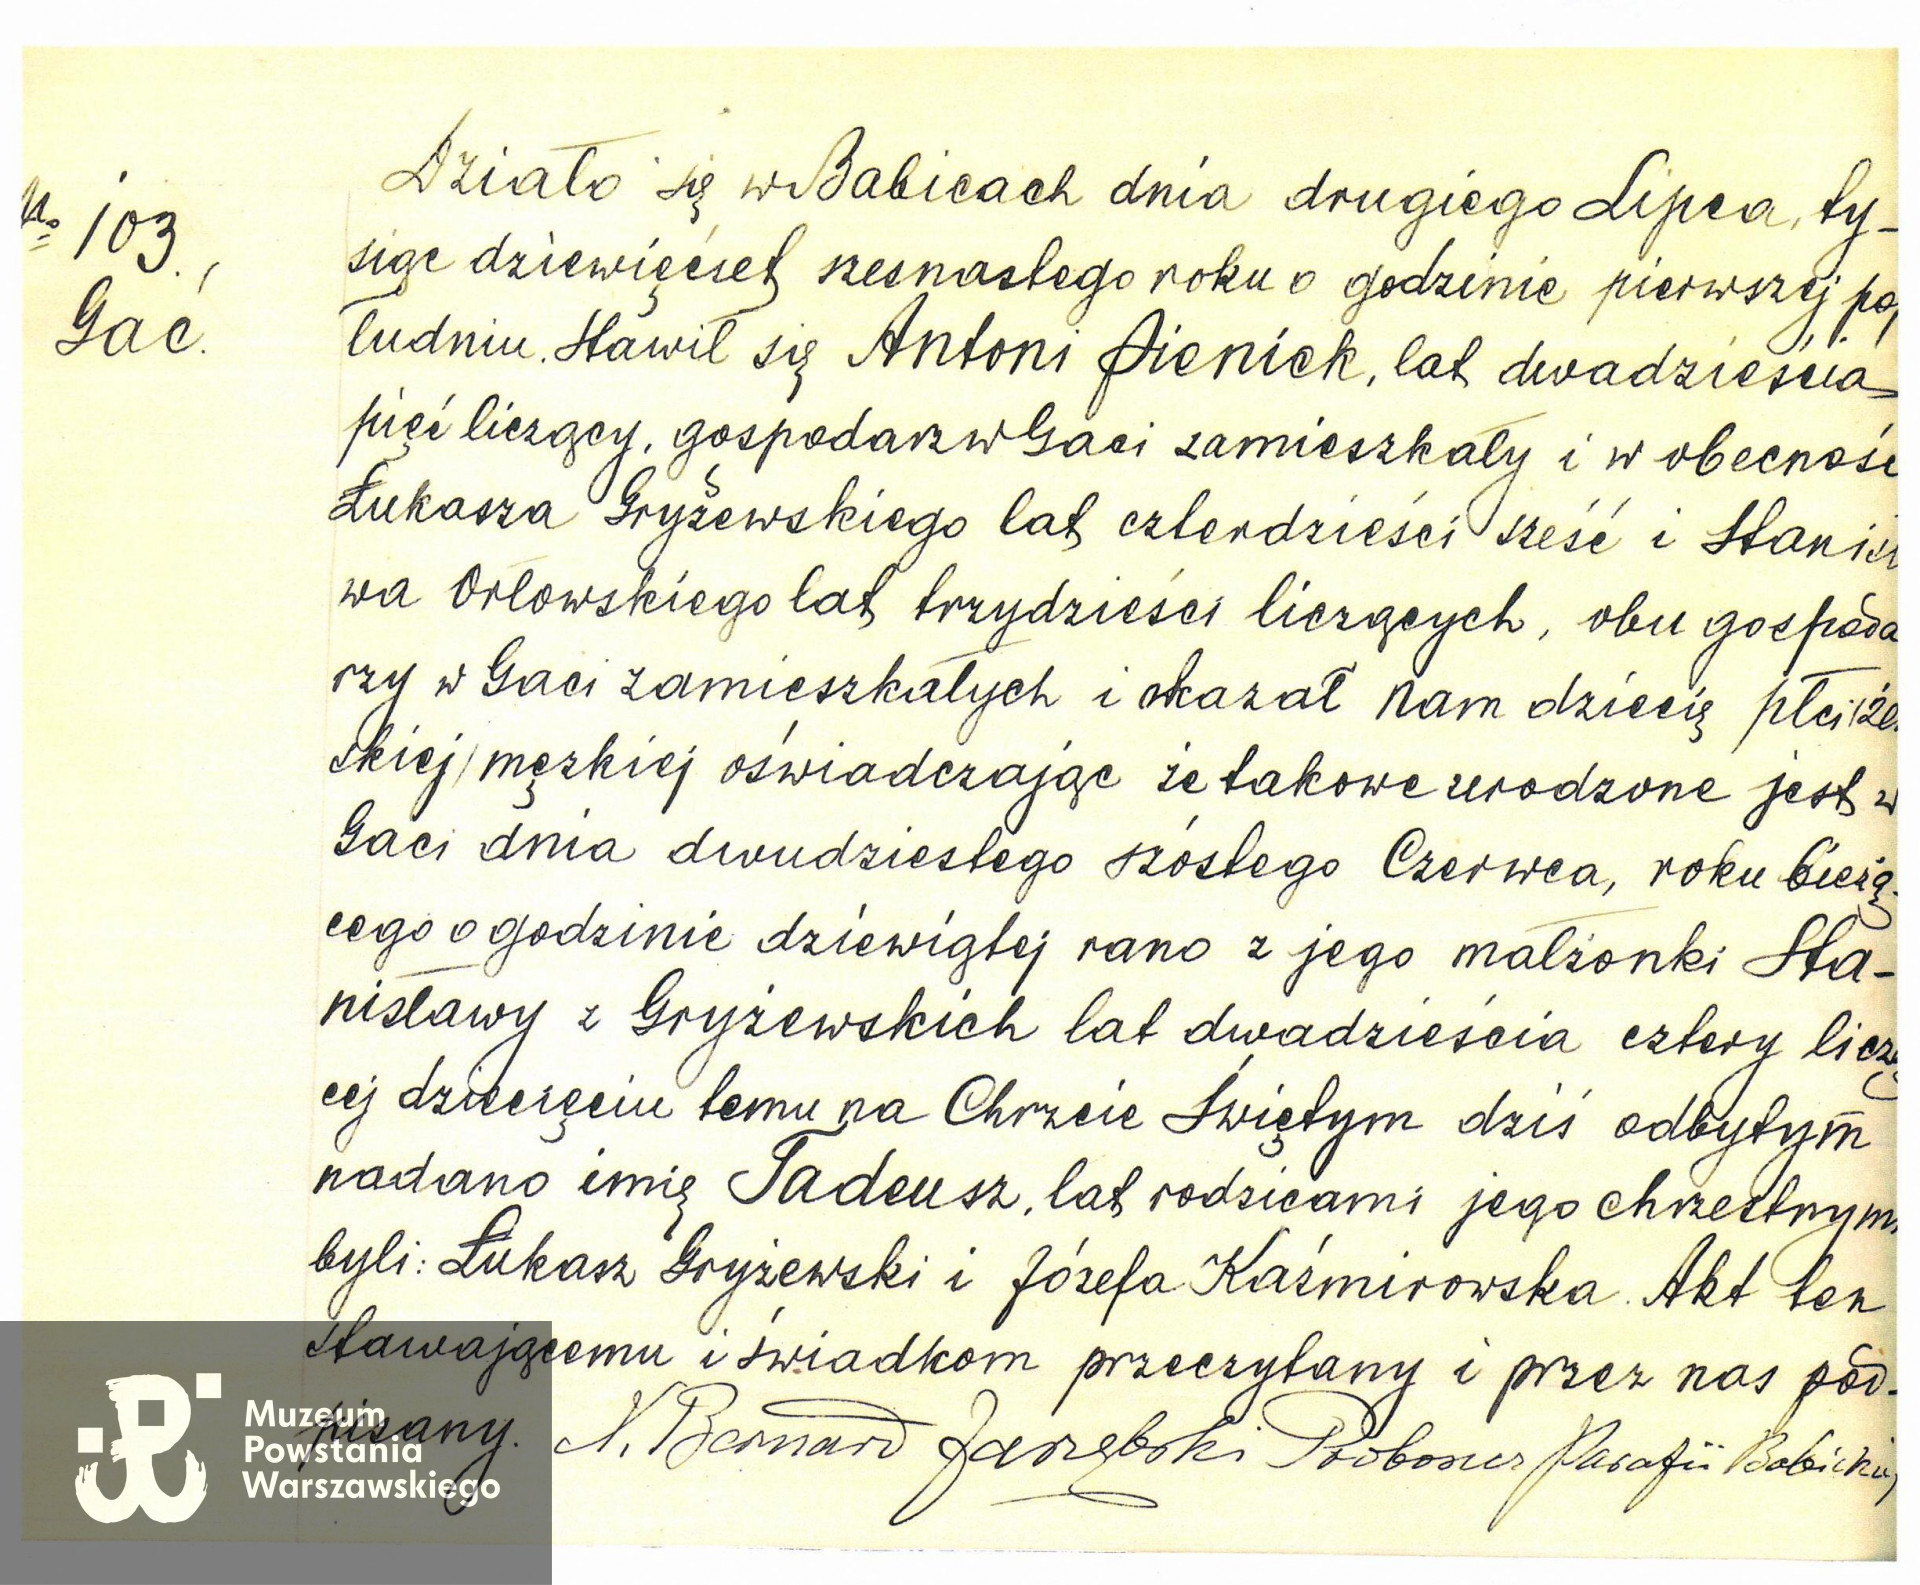 No 103.
Gać.
Działo się w Babicach dnia drugiego Lipca, ty-
siąc dziewięćset szesnastego roku o godzinie pierwszej po
łudniu. Stawił się Antoni Pienick, lat dwadzieścia
pięć liczący, gospodarz w Gaci zamieszkały i w obecnośc
Łukasza Gryżewskiego lat czterdzieści sześć i Stanis
wa Orłowskiego lat trzydzieści liczących, obu gospoda
rzy w Gaci zamieszkałych i okazał nam dziecię płci (że
skiej) męzkiej oświadczając że takowe urodzone jest w
Gaci dnia dwudziestego szóstego Czerwca, roku bieżą-
cego o godzinie dziewiątej rano z jego małżonki Sta-
nisławy z Gryżewskich lat dwadzieścia cztery liczą
cej dziecięciu temu na Chrzcie Świętym dziś odbytym
nadano imię Tadeusz, lat rodzicami jego chrzestnymi
byli: Łukasz Gryżewski i Józefa Kaźmirowska. Akt ten
stawającemu i świadkom przeczytany i przez nas pod-
pisany. X. Bernard Jarzębski Proboszcz Parafii Babickiej
Muzeum
Powstania
Warszawskiego